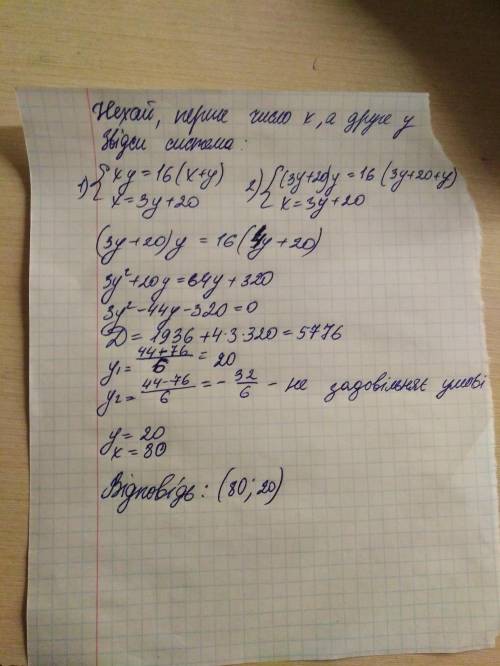 Нехай, перше число x, а друге y
Звідси система:
1) { xy = 16(x+y) 2) { (3y+20)y = 16(3y+20+y)
x = 3y+20 x = 3y+20
(3y+20)y = 16(4y+20)
3y²+20y = 64y+320
3y²-44y-320=0
D = 1936+4·3·320=5776
y₁ = 44+76/6 = 20
y₂ = 44-76/6 = -32/6 - не задовільняє умові
y = 20
x = 80
Відповідь: (80; 20)